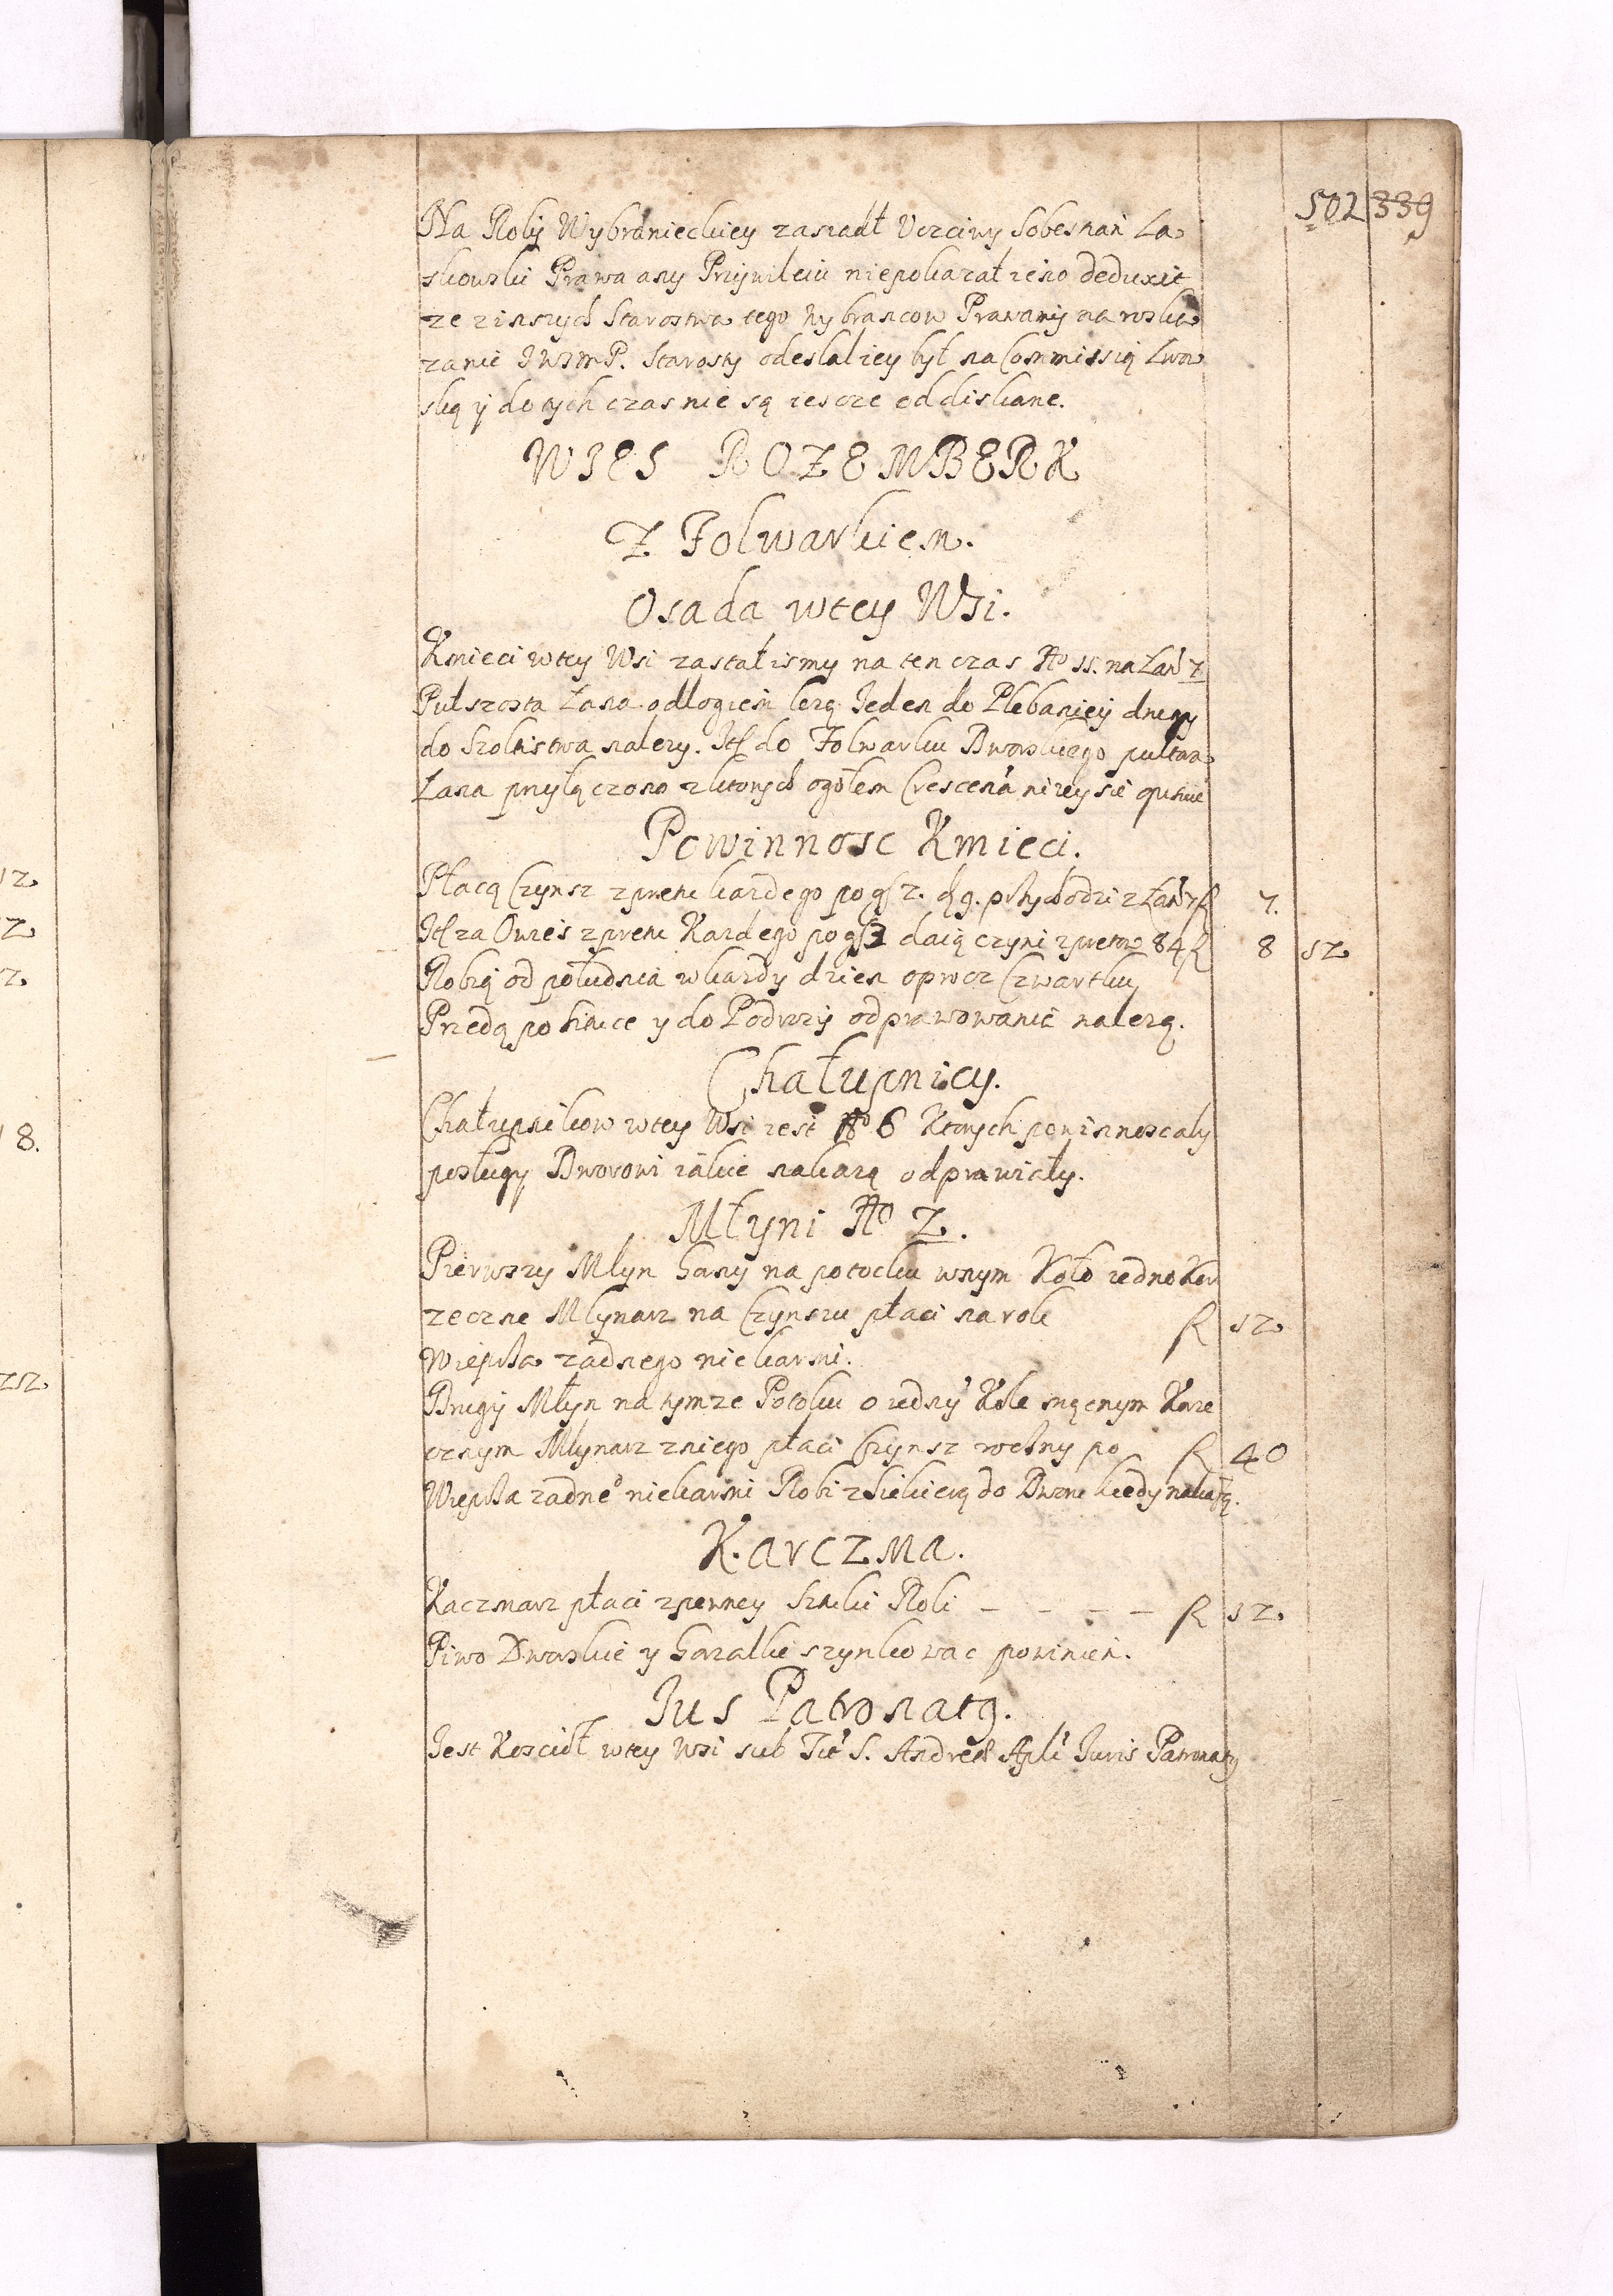 502 339
Na Roliy Wybranieckiey zasiadł Vczciwy Sobestian La
skowski Prawa any Przywileiu niepokazał ieno deduxit
ze zinszych Starostwa tego wybrancow Prawami na rozka
zanie JwImP. Starosty odesłał iey był na Commissią Lwow
ską y do tych czas nie są iescze oddiskane.
WIES ROZEMBERK
Z Folwarkiem.
Osada wtey Wsi.
Kmieci wtey Wsi zastalismy na ten czas No 11. na Łan 7
Puł szosta Łana odłogiem lezą Jeden do Plebaniey drugy
do Szoltistwa nalezy. Itt do Folwarku Dworskiego pułtora
Łana przyłączono z ktorych ogołem Crescená
Powinnosc Kmieci.
Płacą Czynsz zpreta kazdego po gſ 2. d 9. przychodzi z Łan 7 fl 7.
Itt za Owies zpreta Kazdego po gſ 3 daią czyni zpretow 84 fl 8 12
Robią od południa wkazdy dzien oprocz Czwartku
Przedą po sztuce y do Podrozy odprawowanie nalezą.
Chałupnicy.
Chałupnikow wtey Wsi iest No 6 Ktorych powinnosc aby
posługy Dworowi iakie nakazą odprawiały.
Młyni No 2.
Pierwszy Młyn Gany na potocku wnym Koło iedno Kor
zeczne Mlynarz na Czynszu płaci na rok fl 12
Wieprza zadnego niekarmi.
Drugy Młyn na tymze Potoku o iedny Kole mącznym Korze
cznym Mlynarz zniego płaci Czynsz roczny po fl 40
Wieprza zadneo niekarmi Robi zSiekierą do Dworu kiedy nakazą.
Karczma.
Kaczmarz płaci zpewney Sztuki Roli – – – – fl 12.
Piwo Dworskie y Gorzałke szynkowac powinien.
Jus Patronatg.
Jest Kosciół wtey Wsi sub Tit S. Andreæ Apli Juris Patronatg